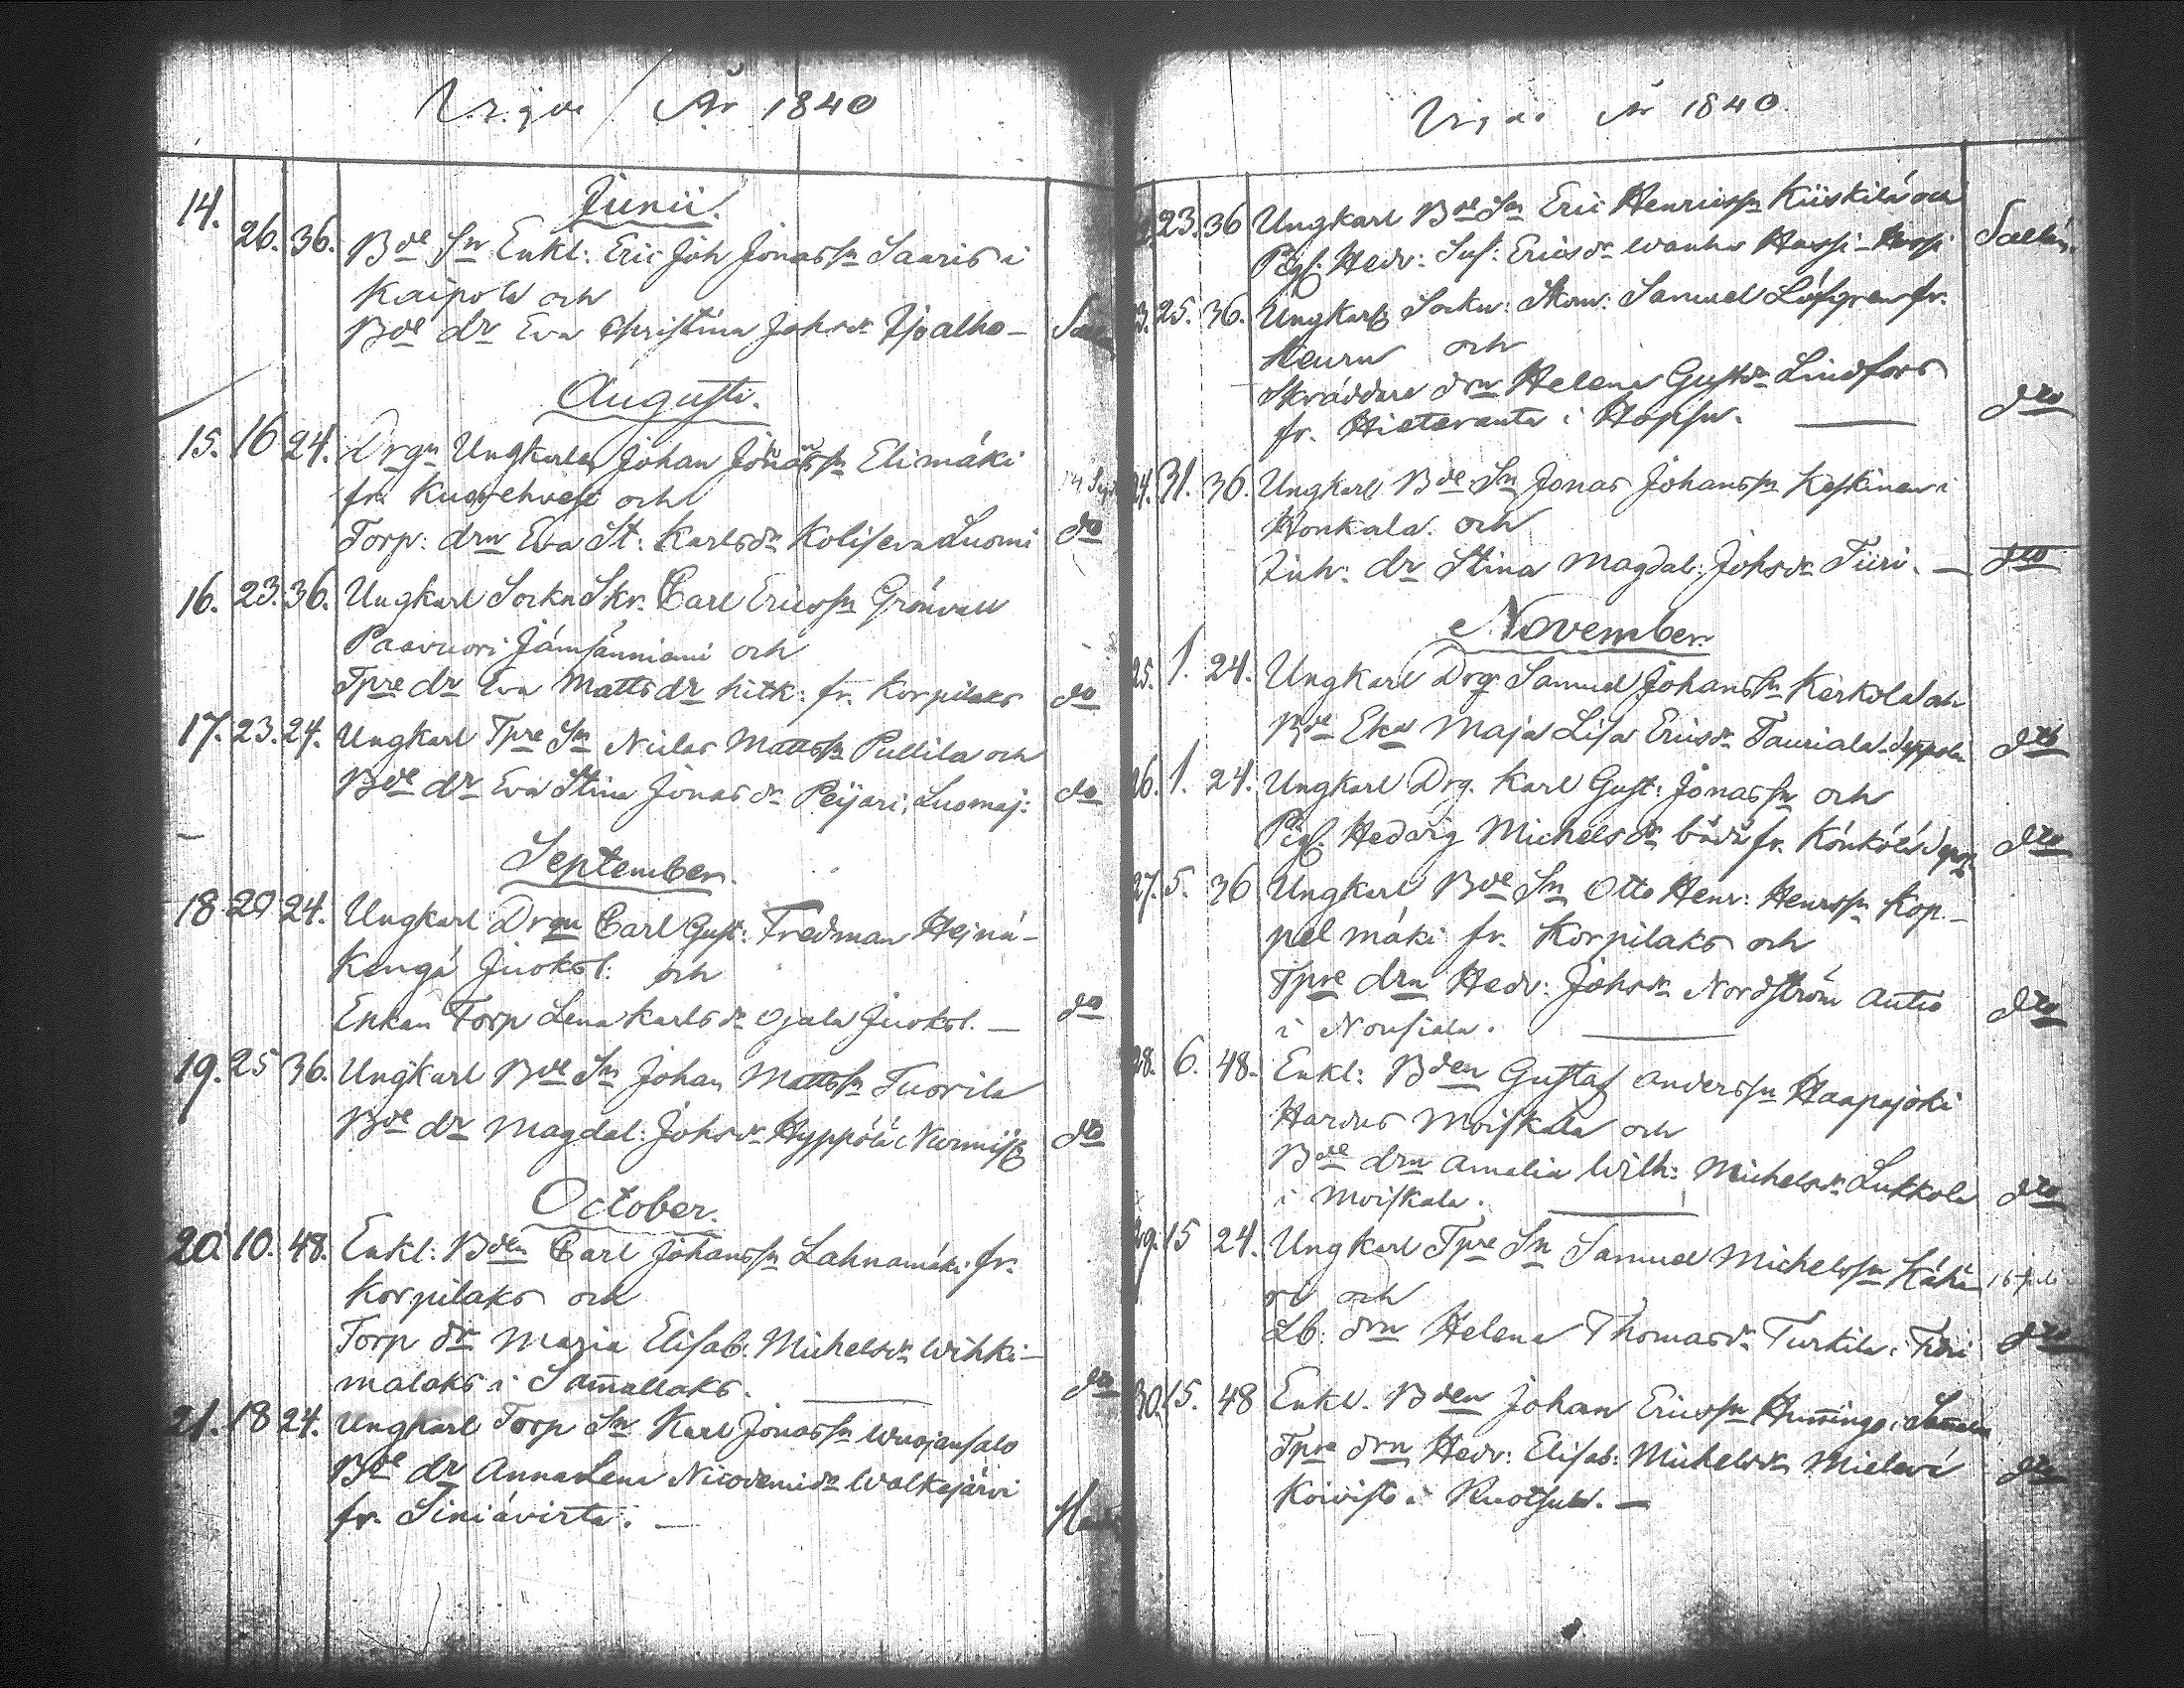 Vigde År 1840
Junii.
14. 26. 36. Bde Sn Enkl: Eric Joh Jonassn Sauris i
Kaipola och
Bde dr Eva Christina Johsdr Ijoalho-
Augusti.
15. 16 24. Drgn Ungkarlen Johan Jonassn Elimäki
fr. Kuorehvesi och
Torp: drn Eva St: Karlsdr Koliseva Luomi do
16. 23. 36. Ungkarl Sockn Skr. Carl Ericssn Grönvall
Paavuori Jämsänniemi och
Tpre dr Eva Mattsdr Kitk: fr. Korpilaks do
17. 23. 24. Ungkarl Tpre Sn Niclas Mattssn Pullila och
Bde dr Eva Stina Jonasdr Peijari, Luomaj: do
September.
18 20 24. Ungkarl Drgn Carl Gust: Fredman Hejnä-
Kengä Juoksl: och
Enkan Torp Lena Karlsdr Ojala Juoksl. — do
19. 25 36. Ungkarl Bde Sn Johan Mattssn Tuorila
Bde dr Magdal: Johsdr Hyppölä i Nurmis dto
October.
20. 10. 48. Enkl: Bden Carl Johanssn Lahnamäki fr.
Korpilaks och
Torp dr Maria Elisab. Michelsdr Wihki-
malaks i Sam̄allaks. dto
21. 18 24. Ungkarl Torp Sn Karl Jonassn Wuojansalo
Bde dr Anna Lena Nicodemidr Walkejärvi
fr. Siniävirta. —
Vigde År 1840.
23. 36 Ungkarl Bde Sn Eric Henricssn Kiiskilä och
Pig. Hedv: Sus: Ericsdr Wanha Hassi-Hassi
25. 36. Ungkarl Sockn: Skom: Samuel Löfgren fr.
Keuru och
Skräddare drn Helena Gustdr Lindfors
fr. Hietaranta i Hopsu. dto
31. 36. Ungkarl Bde Sn Jonas Johanssn Keskinen i
Konkala. och
Inh: dr Stina Magdal: Johsdr Tiiri. — dto
November.
25. 1. 24. Ungkarl Drg. Samuel Johanssn Kerkola och
Bde Eka Maja Lisa Ericsdr Tauriala Seppola dto
26. 1. 24. Ungkarl Drg. Karl Gust: Jonassn och
Pig. Hedvig Michelsdr både fr. Könkölä dto
27. 5. 36 Ungkarl Bde Sn Otto Henr: Henrssn Kop-
pelmäki fr. Korpilaks och
Tpre drn Hedv: Johsdr Nordström Autio
i Nousiala. dto
28. 6. 48. Enkl: Bden Gustaf Anderssn Haapajoki
Hardus Moiskala och
Bde drn Amalia Wilh: Michelsdr Lukkola
i Moiskala. dto
29. 15 24. Ungkarl Tpre Sn Samuel Michelssn Kähä-
rä och
Lb: drn Helena Thomasdr Turkila i Tiiri dto
30. 15. 48 Enkl. Bden Johan Ericssn Hum̄inge i
Tpre drn Hedv: Elisab: Michelsdr
Koivisto i Ruotsula. — dto